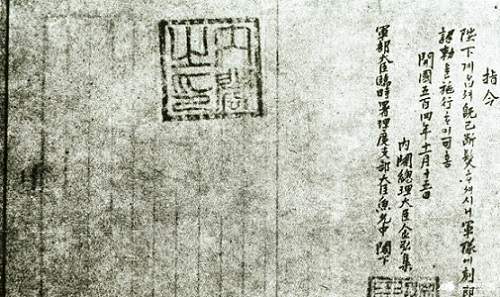 指令
陛下게옵셔旣已斷髮ᄒᆞ셧시니軍隊에刻卽
詔勅을施行ᄒᆞ미可홈
開國五百四年十一月十五日
內閣總理大臣金弘集
軍部大臣臨時署理度支部大臣魚允中 閣下
內閣之印